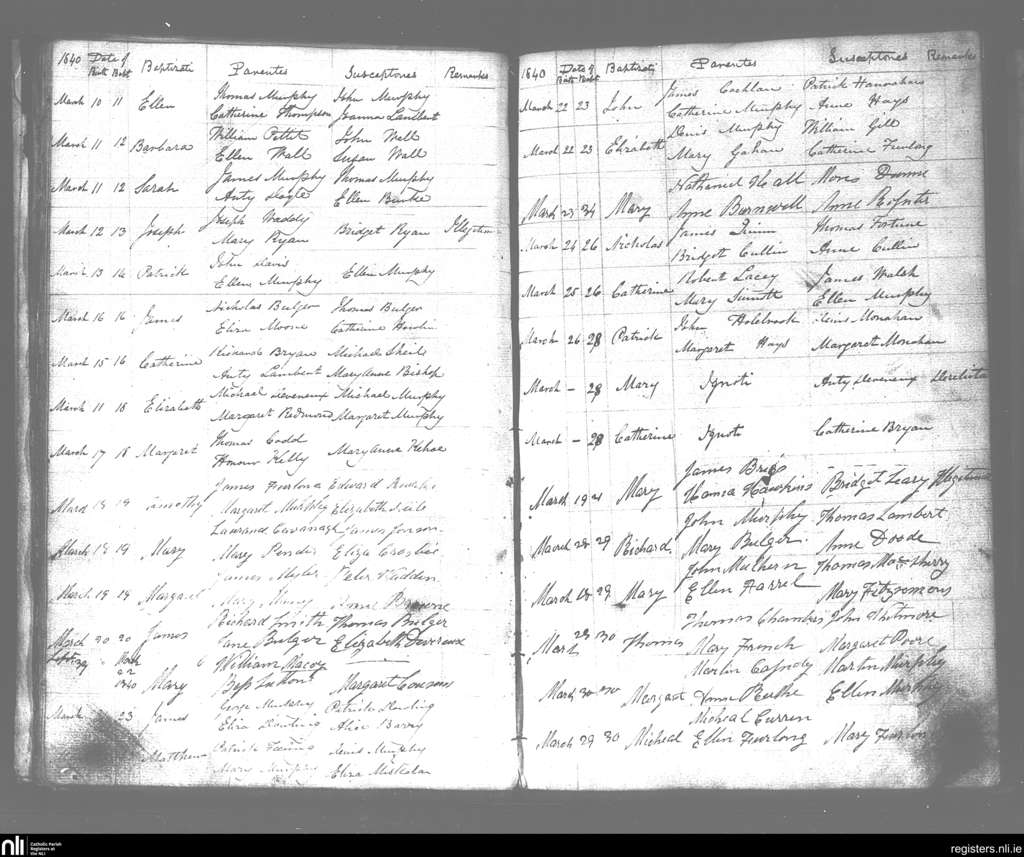 1840 Date of Birth Bapt Baptisati Parentes Susceptores Remarks
March 10 11 Ellen Thomas Murphy John Murphy
Catherine Thompson Joanna Lambert
March 11 12 Barbara William Pettit John Wall
Ellen Wall Susan Wall
March 11 12 Sarah James Murphy Thomas Murphy
Anty Ellen
March 12 13 Joseph Joseph Waddy Bridget Ryan
Mary Ryan
March 13 14 Patrick John Davis Ellen Murphy
Ellen Murphy
March 16 16 James Nicholas Bulger Thomas Bulger
Eliza Moore Catherine
March 15 16 Catherine Richard Bryan Michael Sheile
Anty Lambert Mary Anne Bishop
March 11 18 Elizabeth Michael Devereux Michael Murphy
Margaret Redmond Margaret Murphy
March 17 18 Margaret Thomas Codd Mary Anne Kehoe
Honour Kelly
March 19 James Furlong Edward
Margaret Murphy Elizabeth
March 19 19 Mary Laurance Cavanagh James
Mary Pender Eliza
March 19 19 Margaret James Peter Hadden
Mary Anne Browne
March 20 20 James Richard Smith Thomas Bulger
Jane Bulger Elizabeth Devereux
March 22 1840 Mary William Racey
Bess Sutton Margaret
March 23 James George Patrick Dowling
Eliza Dowling Alice Barry
Matthew Patrick Denis Murphy
Mary Murphy Eliza
1840 Date of Birth Bapt Baptisati Parentes Susceptores Remarks
March 22 23 John James Cochlan Patrick Hanrahan
Catherine Murphy Anne Hays
March 22 23 Elizabeth Denis Murphy William Gill
Mary Gahan Catherine Furlong
Nathaniel Hall Moses Dunne
March 23 24 Mary Anne Barnwell Anne
March 24 26 Nicholas James Quinn Thomas Fortune
Bridget Cullin Anne Cullin
March 25 26 Catherine Robert Lacey James Walsh
Mary Sinnott Ellen Murphy
March 26 28 Patrick John Holbrook Denis Monahan
Margaret Hays Margaret Monahan
March - 28 Mary Ignoti Anty Devereux
March - 28 Catherine Ignoti Catherine Bryan
James
March 19 21 Mary Hanna Hawkins Bridget Leary
John Murphy Thomas Lambert
March 28 29 Richard Mary Bulger Anne Doode
John Mulhern Thomas
March 28 29 Mary Ellen Farrel Mary Fitzsomons
Thomas Chambers John Whitmore
March 28 30 Thomas Mary French Margaret Poore
Martin Casnedy Martin Murphy
March 30 30 Margaet Anne Ellen Murphy
Micheal Curren
March 29 30 Micheal Ellin Furlong Mary Furlon
nli Catholic Parish Registers at the NLI
registers.nli.ie